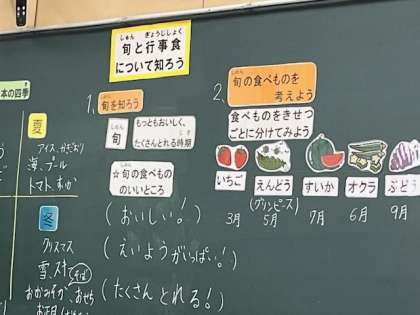 しゅん ぎょうじしょく
旬と行事食
について知ろう
本の四季
夏
アイス、かきごおり
海、プール
トマト、すいか
冬
クリスマス
雪、スキー
そば
おおみそか、おせち
お正月
1、
しゅん
旬を知ろう
しゅん
旬
もっともおいしく、
じき
たくさんとれる時期
しゅん
☆旬の食べもの
のいいところ
(おいしい!)
(えいようがいっぱい!)
(たくさんとれる!)
2、
しゅん
旬の食べものを
考えよう
食べものをきせつ
ごとに分けてみよう
いちご
えんどう
すいか
オクラ
ぶどう
(グリンピース)
3月
5月
7月
6月
9月